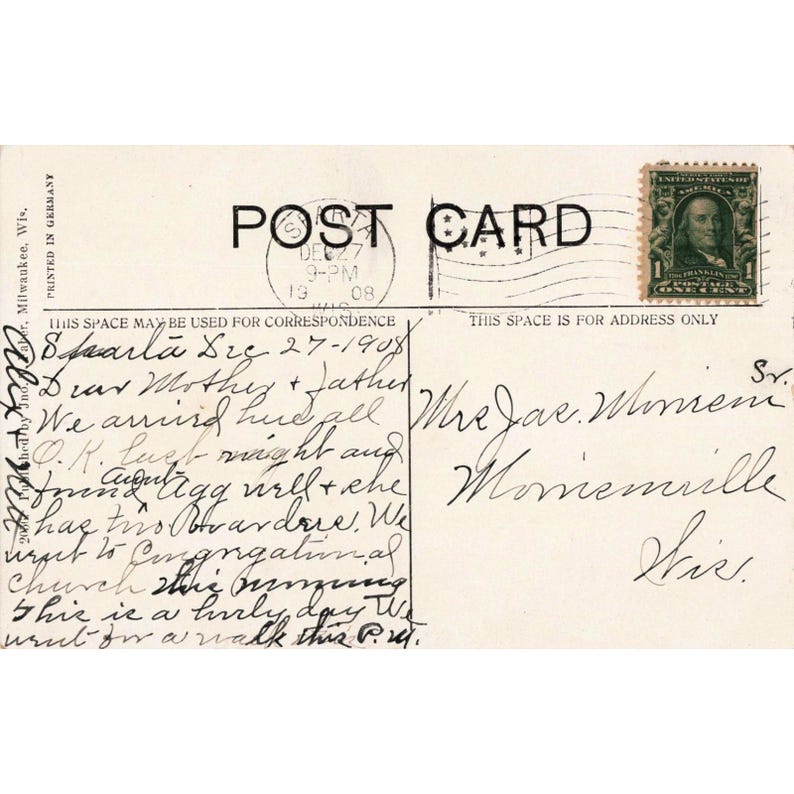 POST CARD
SPARTA
DEC 27
9-PM
19 08
WIS.
SERIES 1902
UNITED STATES OF
AMERICA
1 1706 FRANKLIN 1790 1
POSTAGE
ONE CENT
PRINTED IN GERMANY
Published by Jno. Milwaukee, Wis.
THIS SPACE MAY BE USED FOR CORRESPONDENCE
THIS SPACE IS FOR ADDRESS ONLY
Sparta Dec 27-1908
Dear Mother + father
We arrived here all
O.K. last night and
found Aunt Agg well + she
has two Boarders. We
went to Congregational
church this morning
this is a lovely day We
went for a walk this P.M.
Mrs Jas. Morrison Sr.
Morrisonville
Wis.